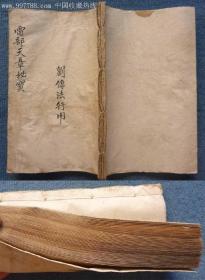 www.997788.com 中国收藏热线
雷部天章地寳
劉偉法行用